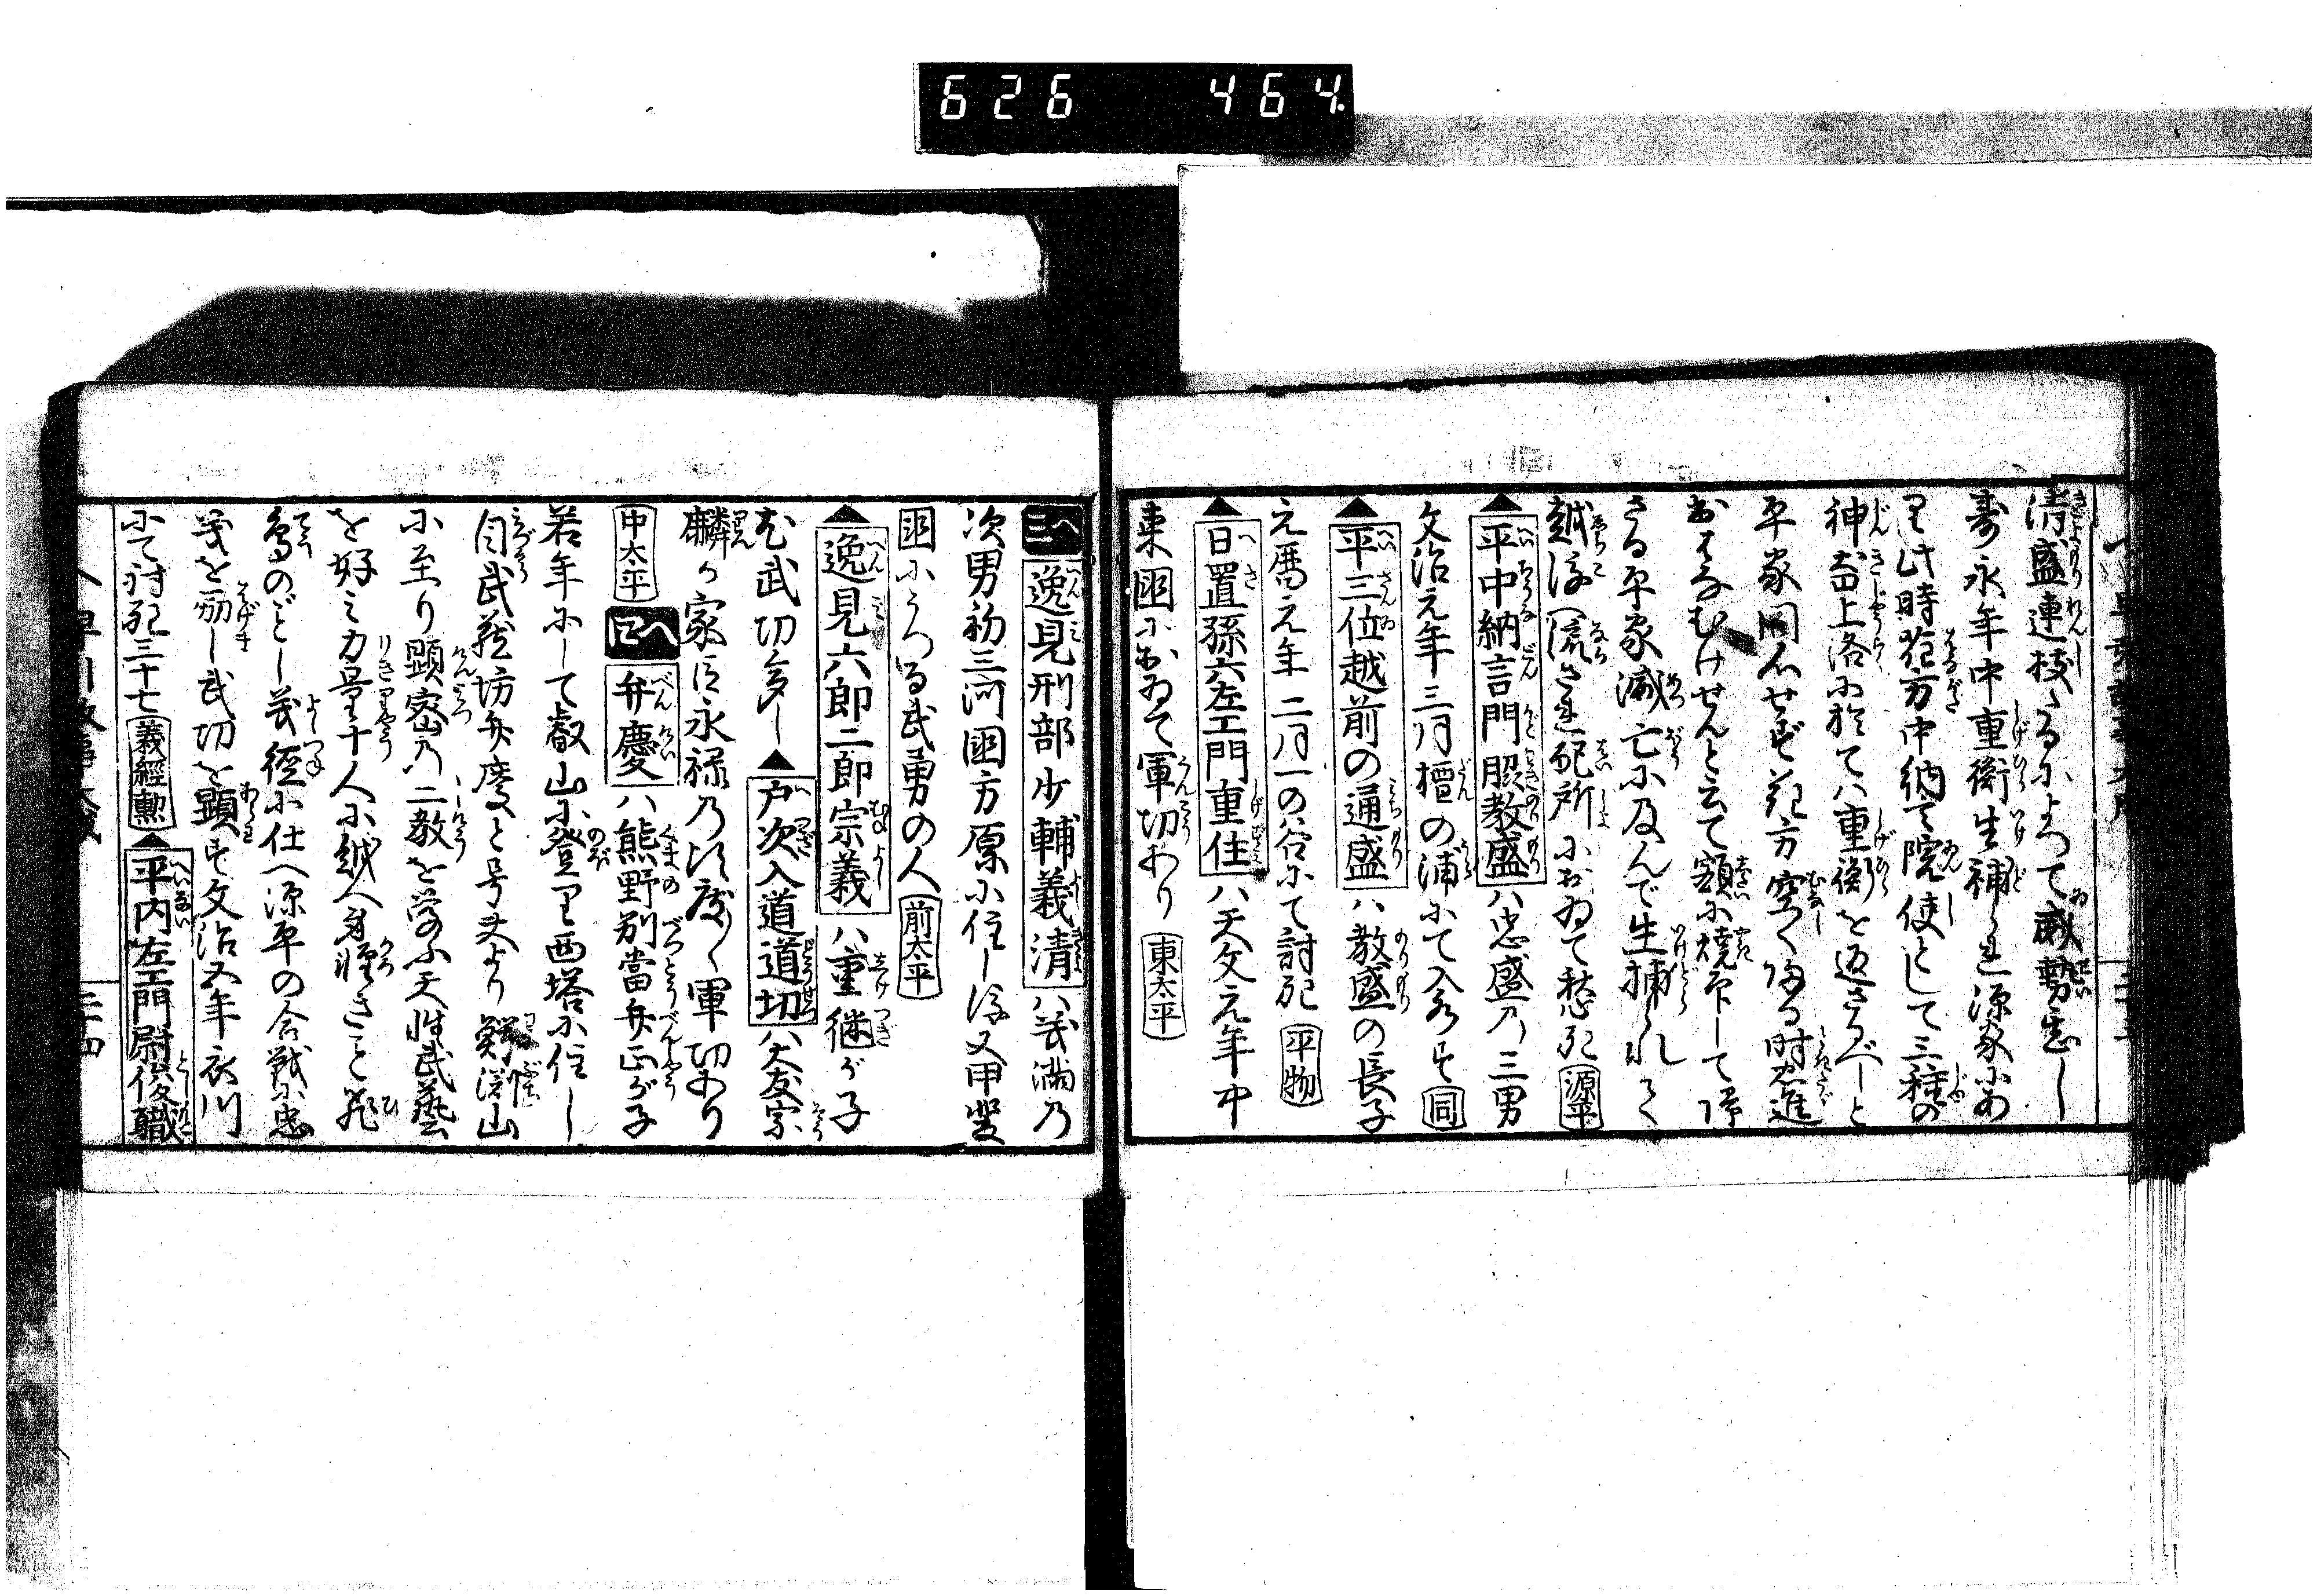 626 464
清盛連枝たるによつて威勢甚し
寿永年中重衡生補られ源家にあ
り此時花方中納言院使として三種の
神器上洛に於ては重衡を返さるべしと
平家同心せず花方空く帰る時忠
おもむけせんと云て額に焼印して帰
さる平家滅亡に及んで生捕られて
越後へ流され配所におゐて愁死 源平
▲平中納言門脇教盛ハ忠盛乃三男
文治元年三月檀の浦にて入水す 同
▲平三位越前の通盛ハ教盛の長子
元暦元年二月一の谷にて討死 平物
▲日置孫六左エ門重住ハ天文元年中
東国におゐて軍切あり 東太平
へ三 逸見刑部少輔義清ハ義満乃
次男初三河国方原に住し後又甲斐
国にうつる武勇の人 前太平
▲逸見六郎二郎宗義ハ重継が子
也武切多し▲戸次入道道切ハ大友宗
麟の家臣永禄乃比度〱軍切あり
中太平 弁慶ハ熊野別當弁正が子
若年にして叡山に登里西塔に住し
自武蔵坊弁慶と号夫より
に至り顕密乃二教を学ふ天性武藝
を好み力量十人に越へ身軽きこと飛
鳥のごとし義経に仕へ源平の合戦に忠
義を励し武切を顕す文治五年衣川
にて討死三十七 義經勲 ▲平内左エ門尉俊職